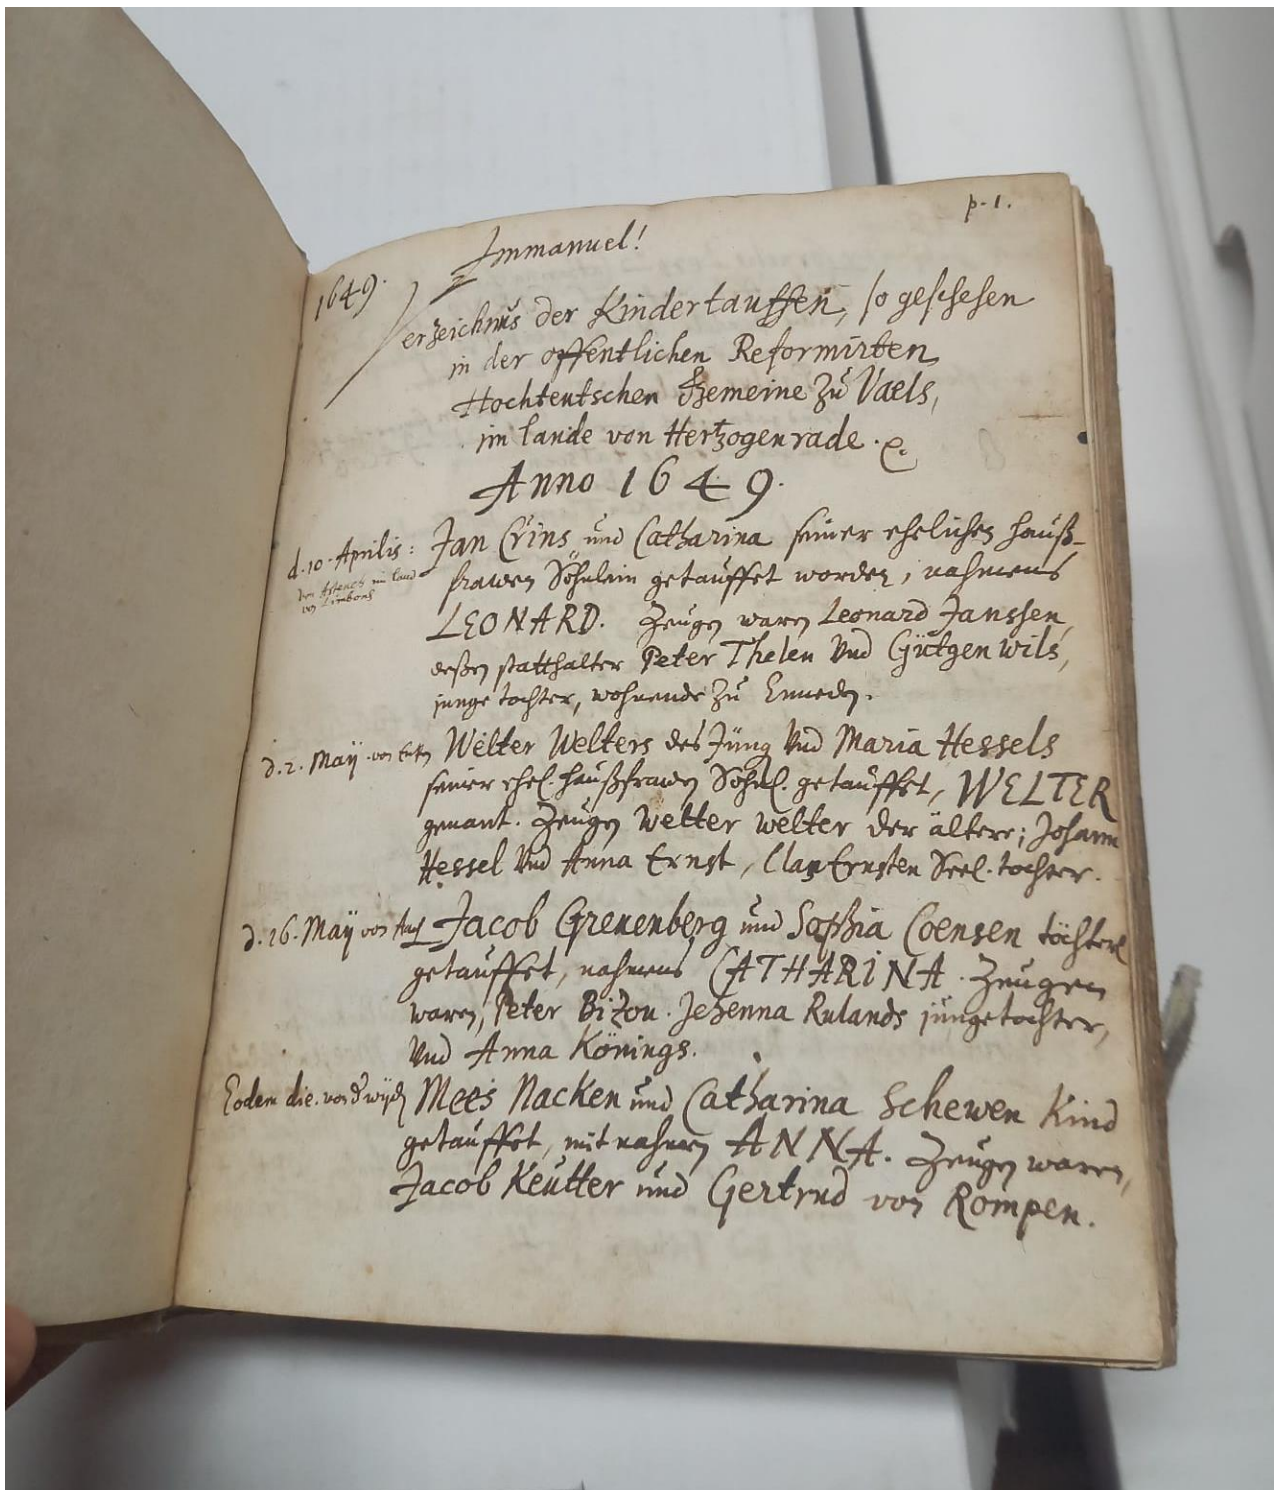 p. 1.
Immanuel!
1649.
Verzeichnus der Kindertauffen, so geschehen
in der offentlichen Reformirten
Hochteutschen Gemeine zu Vaels,
im lande von Hertzogenrade.
Anno 1649.
d. 10. Aprilis: Jan Crins und Catharina seiner ehelichen hauß-
frawen Söhnlein getauffet worden, nahmens
LEONARD. Zeugen waren Leonard Janssen,
deßen statthalter Peter Thelen Und Gütgen wils,
junge tochter, wohnende zu
d. 2. Maij. von Welter Welters des Jüng Und Maria Hessels
seiner ehel. haußfrawen Söhnl. getauffet, WELTER
genant. Zeugen Welter welter der ältere; Johann
Hessel Und Anna Ernst, Ernsten Seel. tochter.
d. 16. Maij von Jacob Grenenberg und Sophia Coensen töchterl
getauffet, nahmens CATHARINA. Zeugen
waren, Peter Bizou. Jehenna Rulands junge tochter,
Und Anna Könings.
Eodem die. von Mees Nacken und Catharina Schewen Kind
getauffet, mit nahmen ANNA. Zeugen waren,
Jacob Keutter und Gertrud von Rompen.